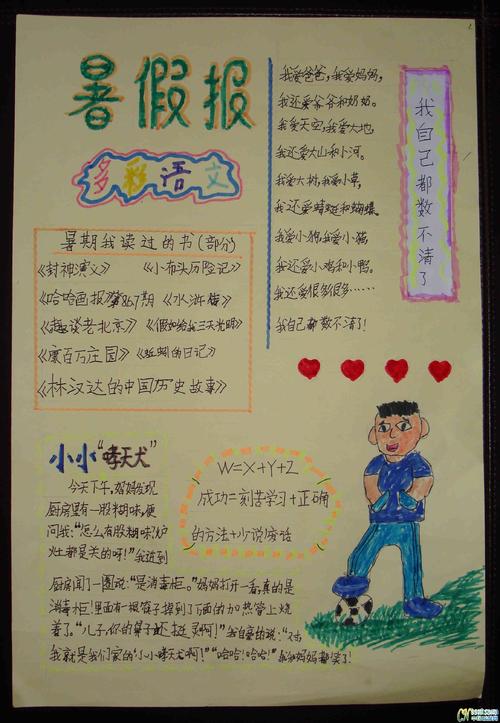 暑假报
多彩语文
暑期我读过的书(部分)
《封神演义》 《小布头历险记》
《哈哈画报第867期》《水浒传》
《趣谈老北京》《假如给我三天光明》
《康百万庄园》《蚯蚓的日记》
《林汉达的中国历史故事》
我爱爸爸,我爱妈妈,
我还爱爷爷和奶奶。
我爱天空,我爱大地,
我还爱大山和小河。
我爱大树,我爱小草,
我还爱蜻蜓和蝴蝶。
我爱小狗,我爱小猫
我还爱小鸡和小鸭。
我还爱很多很多……
我自己都数不清了!
我自己都数不清了
小小“哮天犬”
今天下午,妈妈发现
厨房里有一股糊味,便
问我:“怎么有股糊味?炉
灶都是关的呀!”我跑到
厨房闻了一圈说:“是消毒柜。”妈妈打开一看,真的是
消毒柜!里面有一根筷子掉到了下面的加热管上烧
着了。“儿子,你的鼻子还挺灵啊!”我自豪的说:“
我就是我们家的‘小小哮天犬’啊!”“哈哈!哈哈!”我和妈妈都笑了!
W=X+Y+Z
成功=刻苦学习+正确
的方法+少说废话